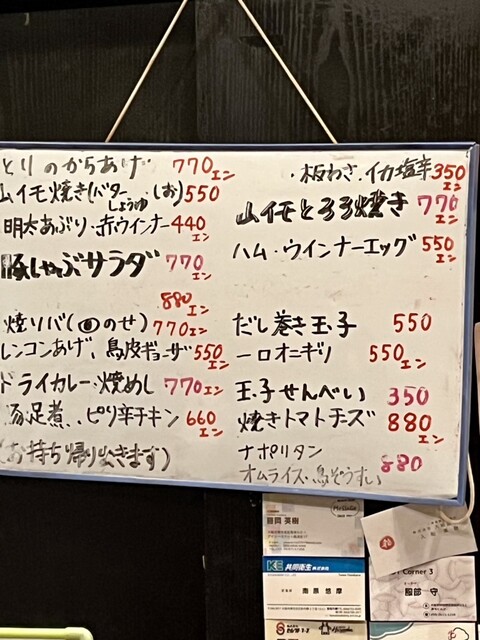 とりのからあげ 770エン
山イモ焼き(バターしょうゆ しお) 550
明太あぶり・赤ウインナー 440エン
豚しゃぶサラダ 770エン
880エン
焼ソバ(のせ) 770エン
レンコンあげ、鳥皮ギョーザ 550エン
ドライカレー・焼めし 770エン
豚足煮、ピリ辛チキン 660エン
(お持ち帰りできます)
・板わさ・イカ塩辛 350エン
山イモとろろ焼き 770エン
ハム・ウインナーエッグ 550エン
だし巻き玉子 550
一口オニギリ 550エン
玉子せんべい 350
焼きトマトチーズ 880エン
ナポリタン
オムライス・鳥ぞうすい 880
共同衛生株式会社
南原 悠摩
Corner 3
服部 守